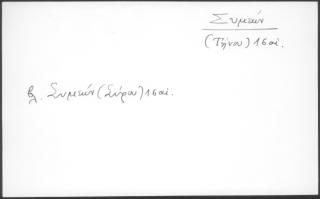 Συμεών
(Τήνου) 16 αἰ.
βλ. Συμεών (Σύρου) 16 αἰ.